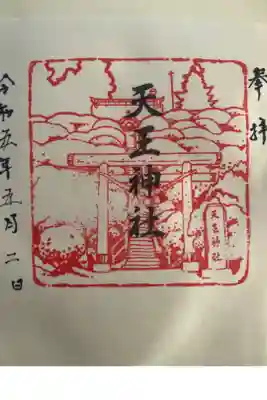 奉拝
天王神社
天王神社
令和五年五月二日